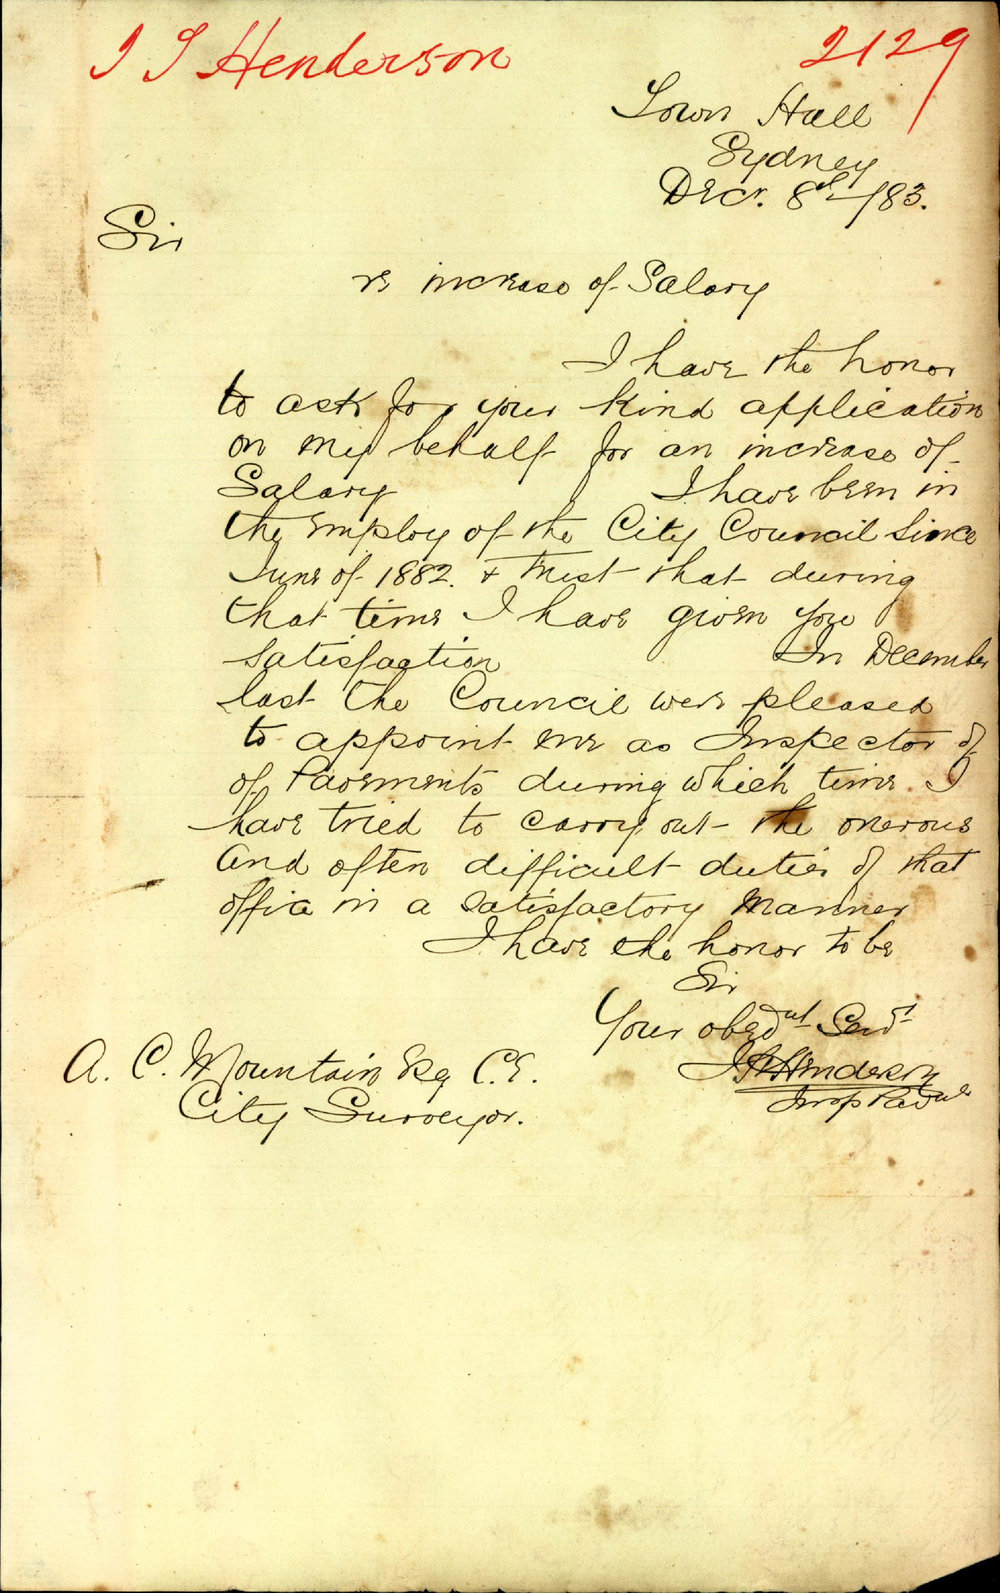 J S Henderson
2129
Town Hall
Sydney
Decr. 8th /83.
Sir
re increase of Salary
I have the honor
to ask for your kind application
on my behalf for an increase of
Salary I have been in
the employ of the City Council since
June of 1882. & trust that during
that time I have given you
satisfaction In December
last the Council were pleased
to appoint me as Inspector of
of Pavements during which time I
have tried to carry out the onerous
and often difficult duties of that
office in a satisfactory manner
I have the honor to be
Sir
Your obedut Servt
Henderson
Insp Pavmts
A. C. Mountain Esq C.E.
City Surveyor.